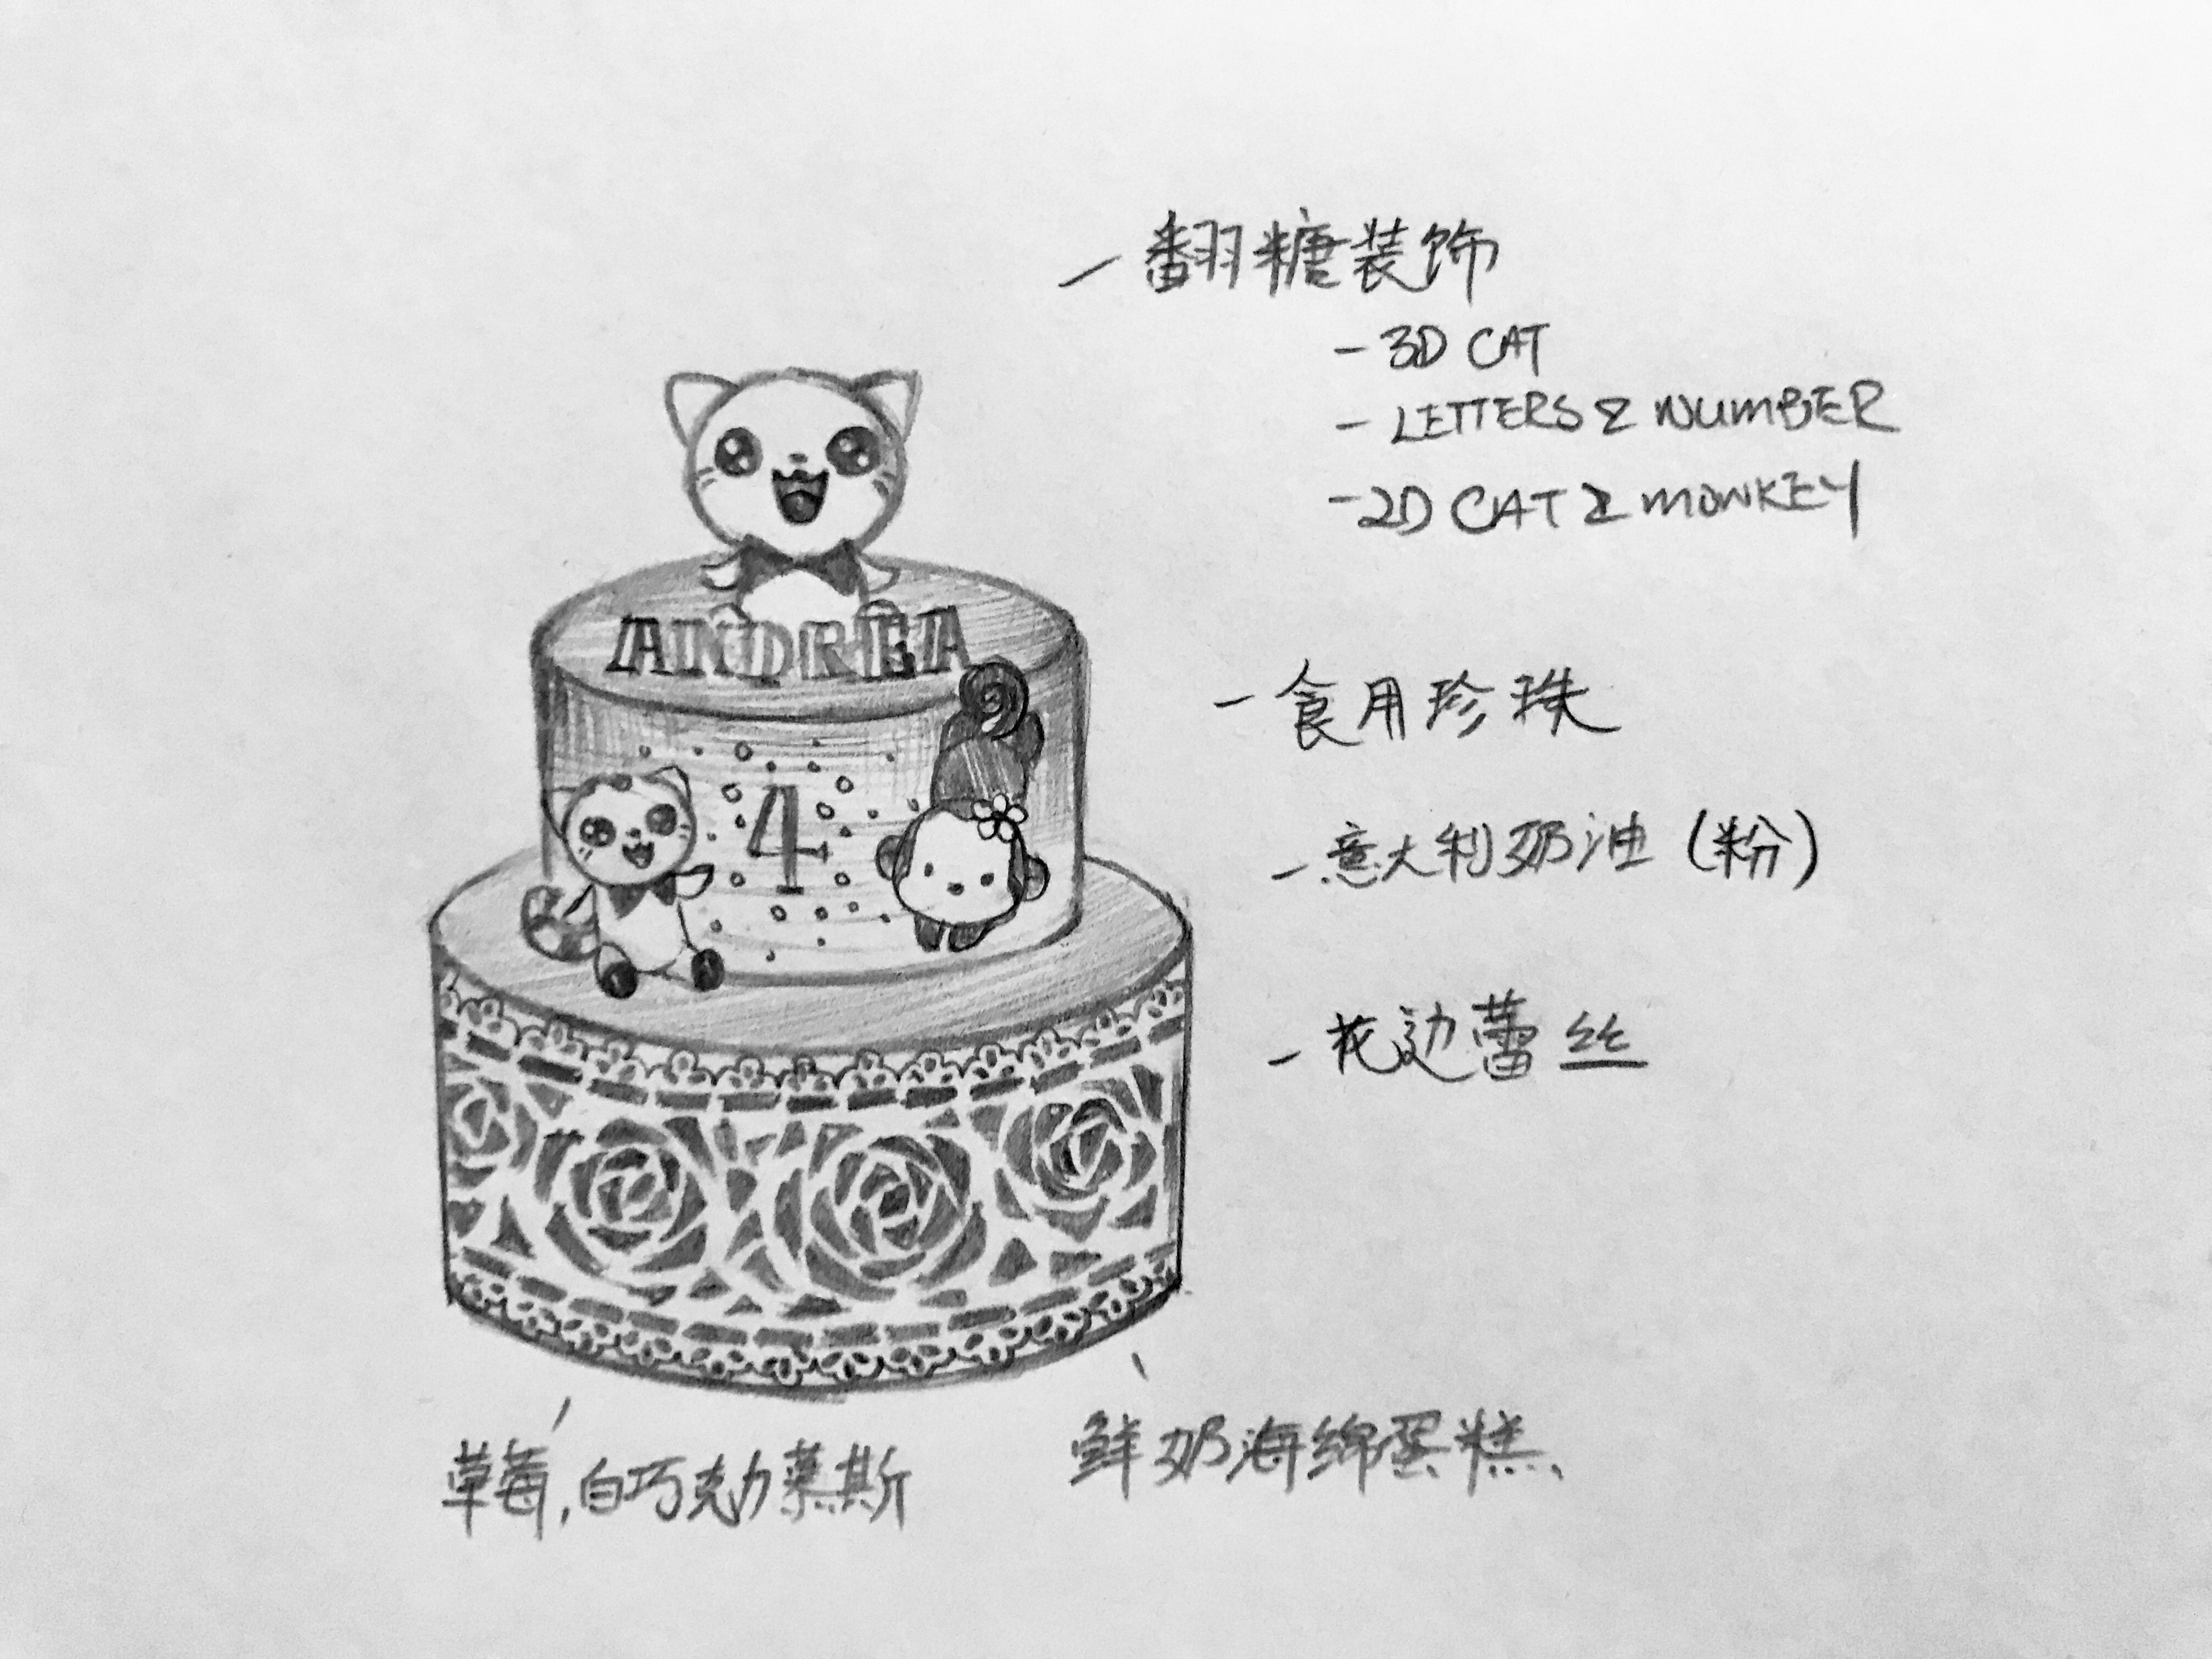 - 翻糖装饰
- 3D CAT
- LETTERS & NUMBER
- 2D CAT & MONKEY
ANDREA
- 食用珍珠
4
- 意大利奶油 (粉)
- 花边蕾丝
草莓,白巧克力慕斯
鲜奶海绵蛋糕、